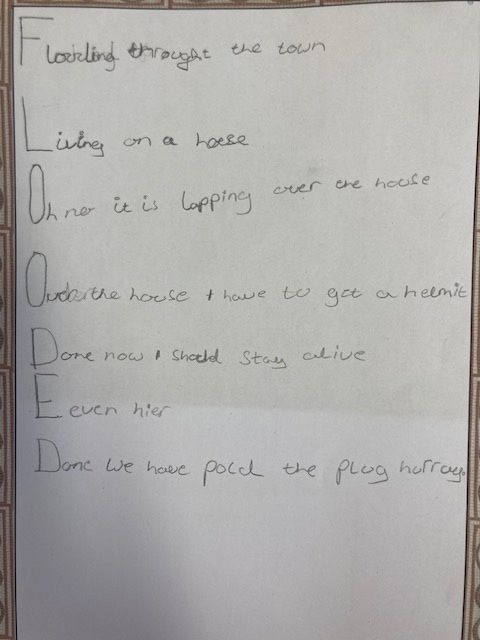 Flooding throught the town
Living on a hoese
Oh no it is lapping over the house
Over the house I have to get a helmit
Done now I should stay alive
E even hier
Done we have pold the plug hurray.